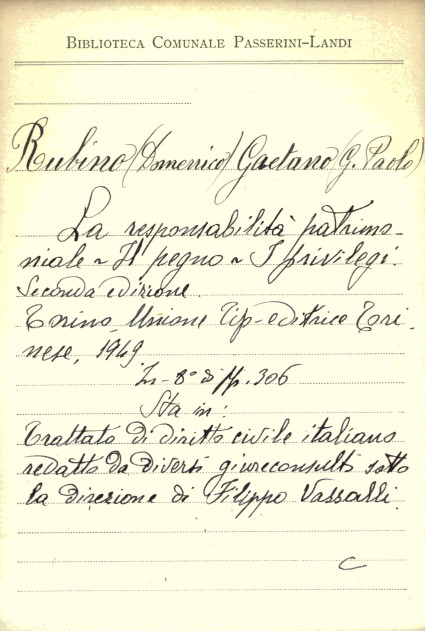 BIBLIOTECA COMUNALE PASSERINI-LANDI
Rubino (Domenico) Gaetano (G. Paolo)
La responsabilità patrimo-
niale ~ Il pegno ~ I privilegi.
Seconda edizione.
Torino, Unione Tip-editrice Tori-
nese, 1949
In-8° di pp. 306
Sta in:
Trattato di diritto civile italiano
redatto da diversi giureconsulti sotto
la direzione di Filippo Vassalli.
C